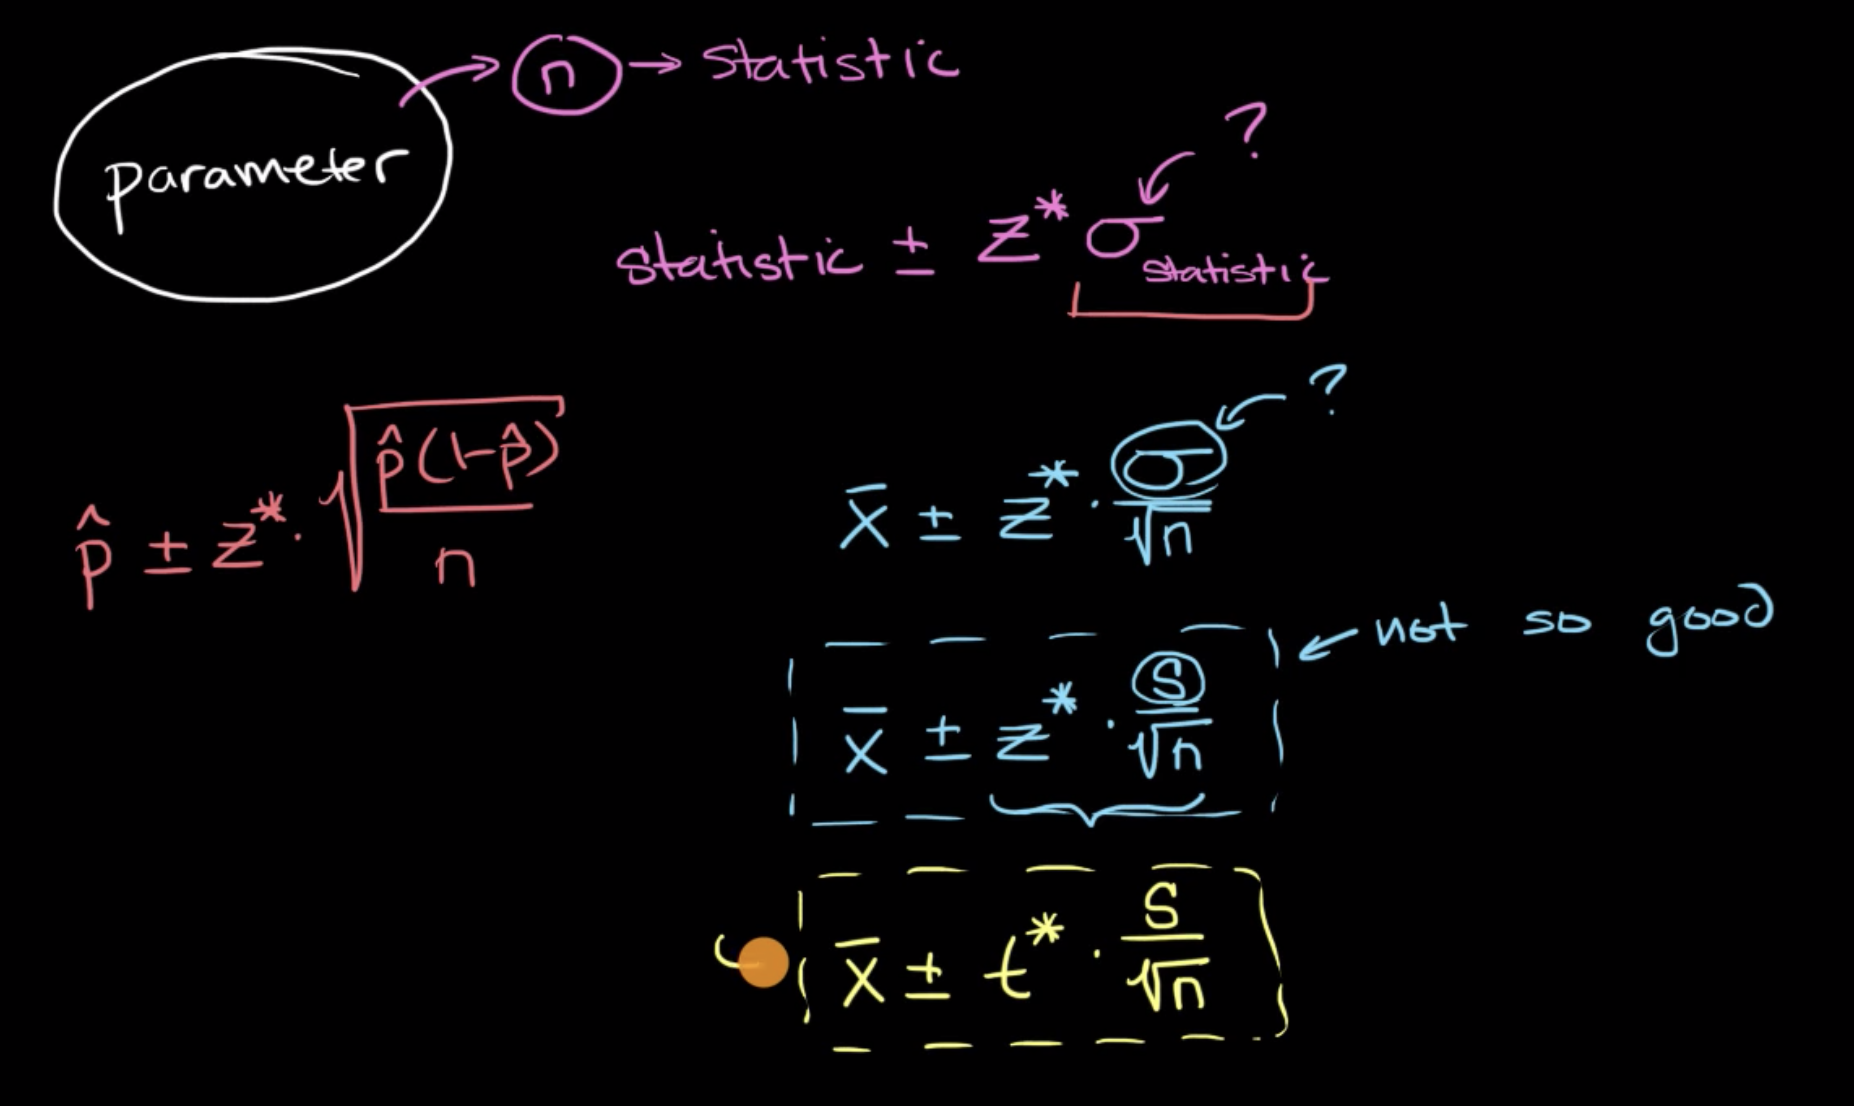 parameter
n → statistic
?
statistic ± z* σ_statistic
p̂ ± z* · √(p̂(1-p̂)/n)
?
x̄ ± z* · σ/√n
not so good
x̄ ± z* · S/√n
x̄ ± t* · S/√n